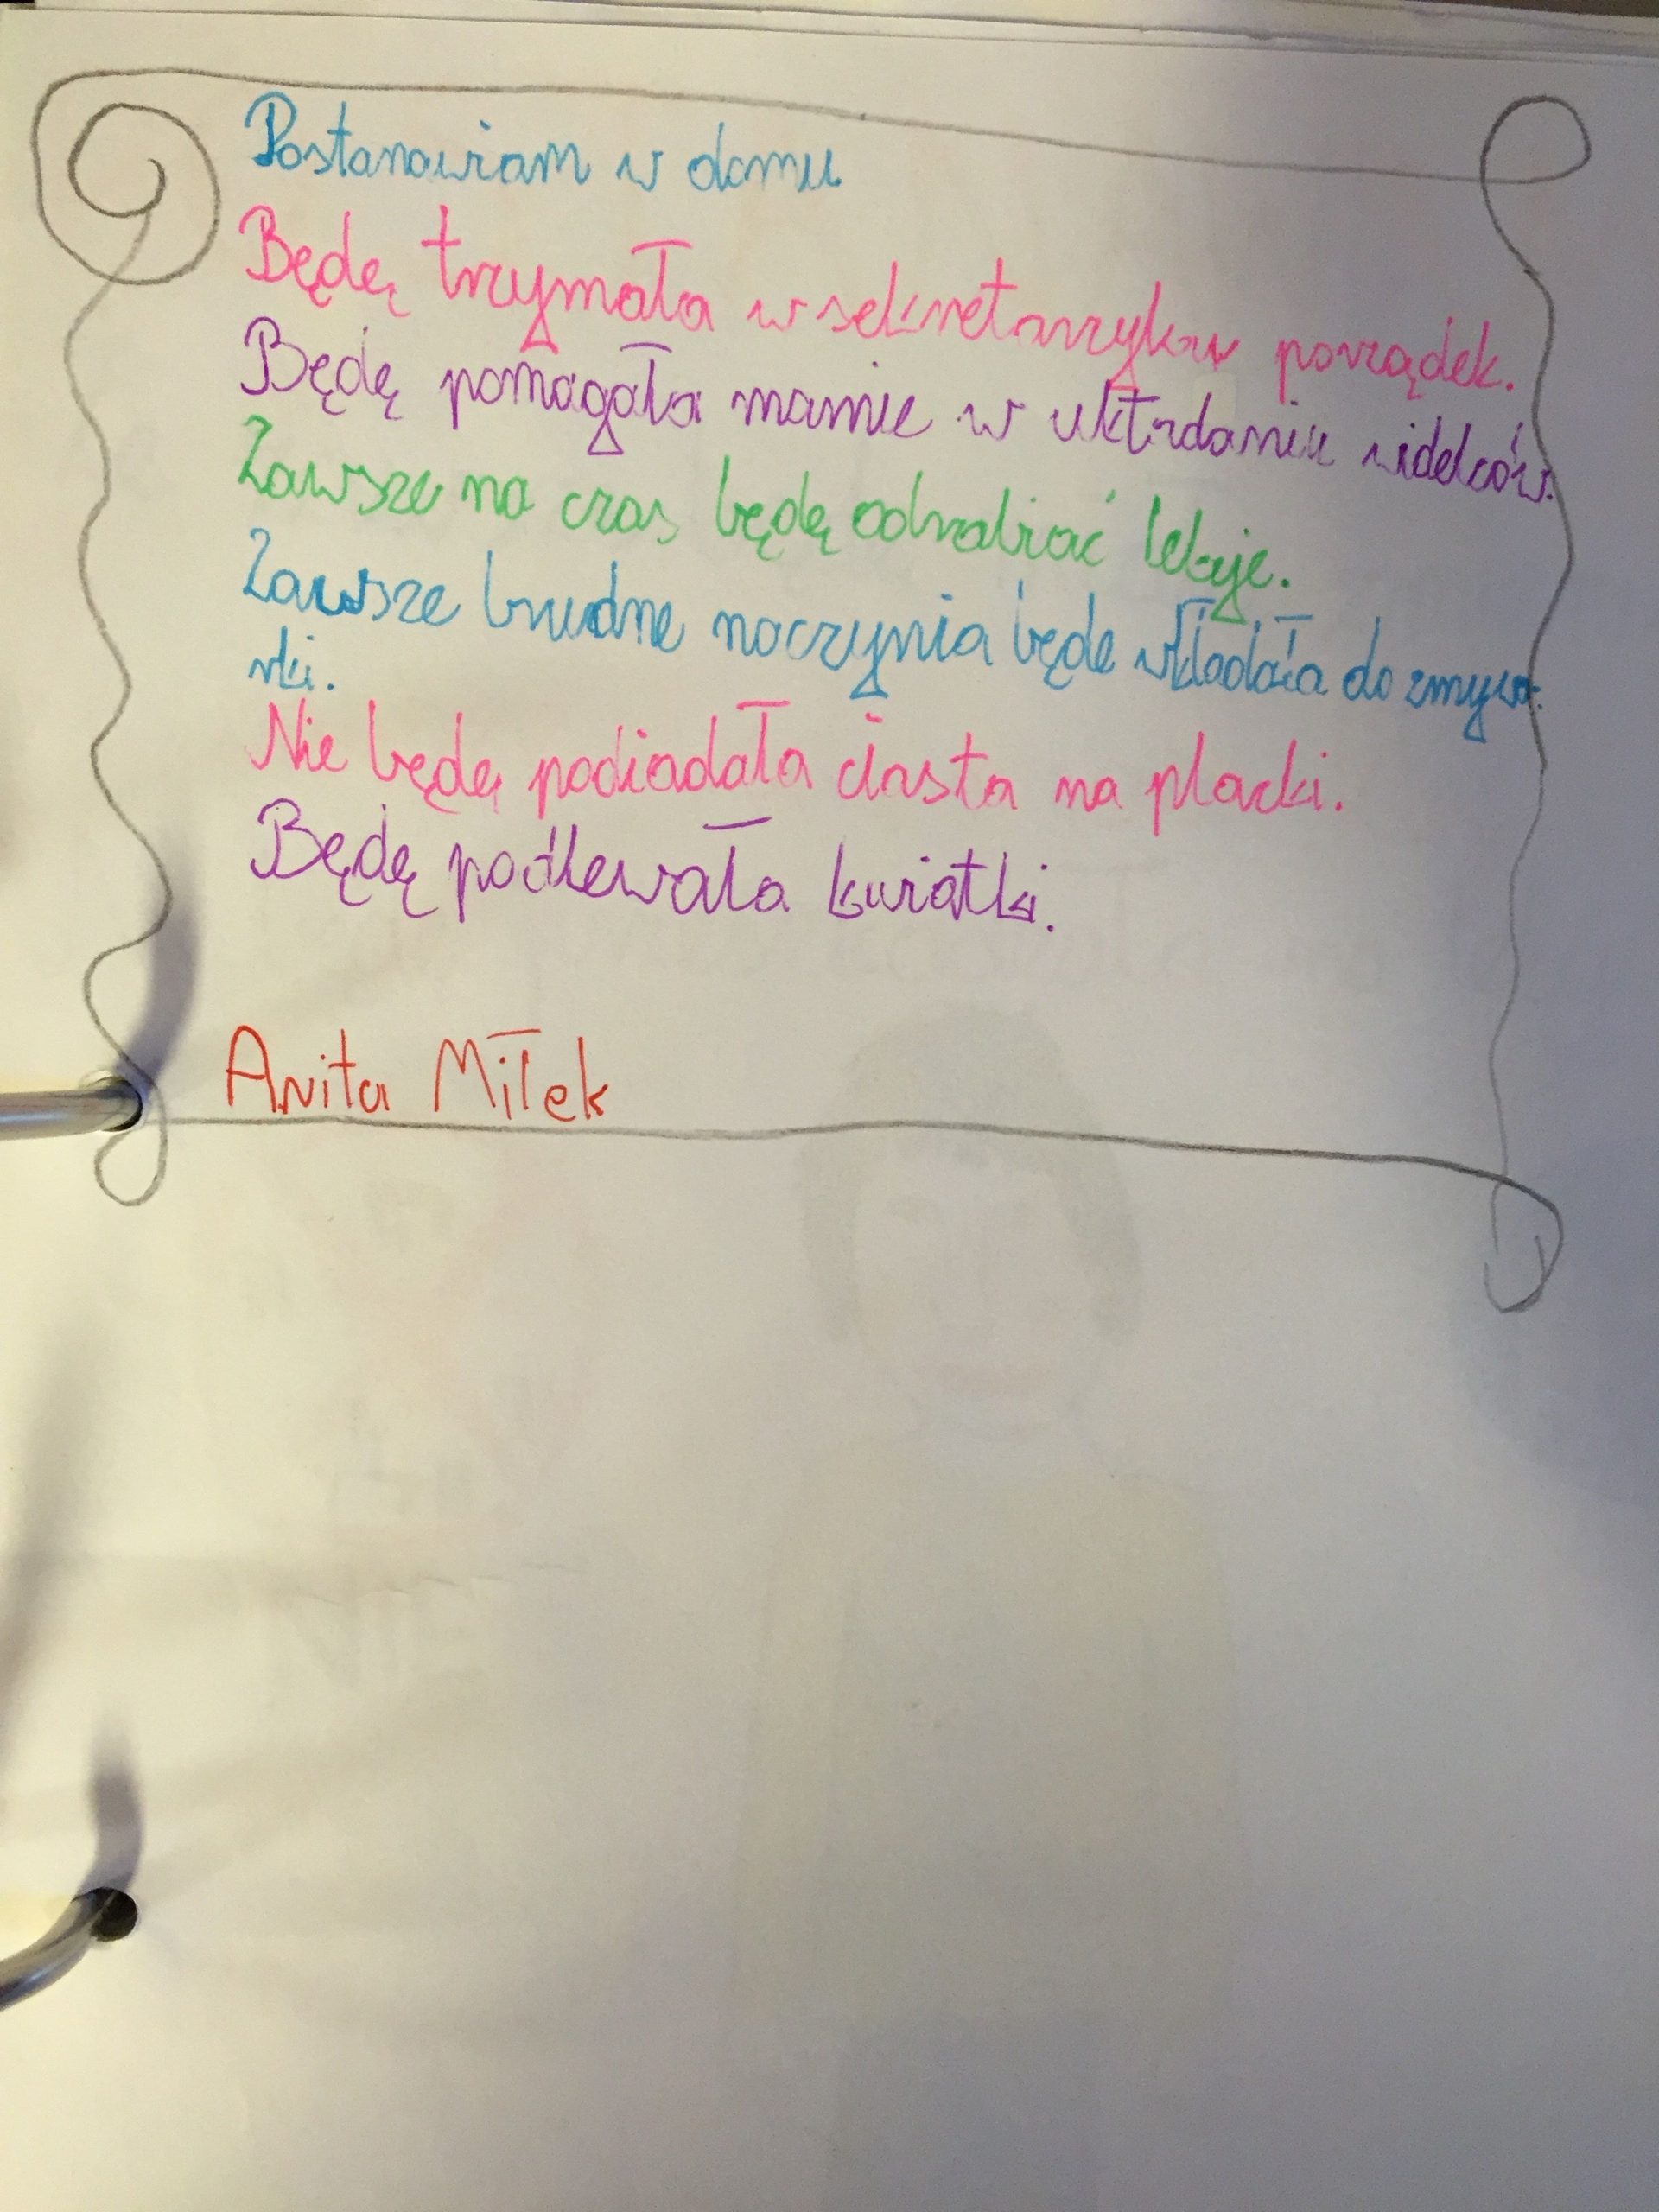 Postanawiam w domu
Będę trzymała w sekretarzyku porządek.
Będę pomagała mamie w układaniu widelców.
Zawsze na czas będę odrabiać lekcje.
Zawsze brudne naczynia będe wkładała do zmywa-
rki.
Nie będę podiadała ciasta na placki.
Będę podlewała kwiatki.
Anita Miłek